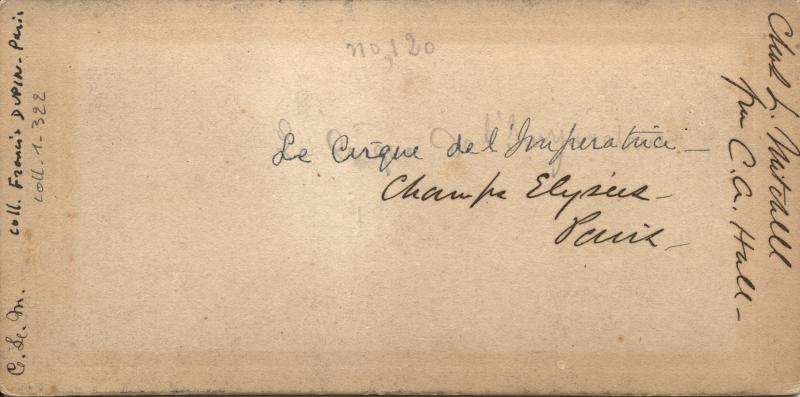 no, 120
Le Cirque de l'Imperatrice –
Champs Elysées –
Paris –
Chas L. Mitchell
fm C. A. Hall –
coll. Francis DUPIN - Paris
coll. 1 - 322